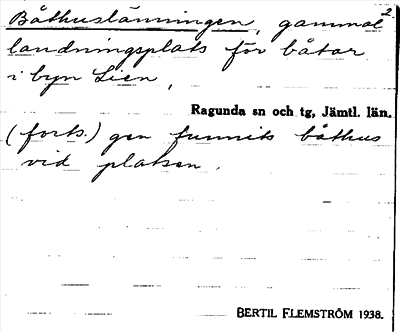 2.
Båthuslämningen, gammal
landningsplats för båtar
i byn Lien,
Ragunda sn och tg, Jämtl. län.
(forts.) gen funnits båthus
vid platsen.
BERTIL FLEMSTRÖM 1938.